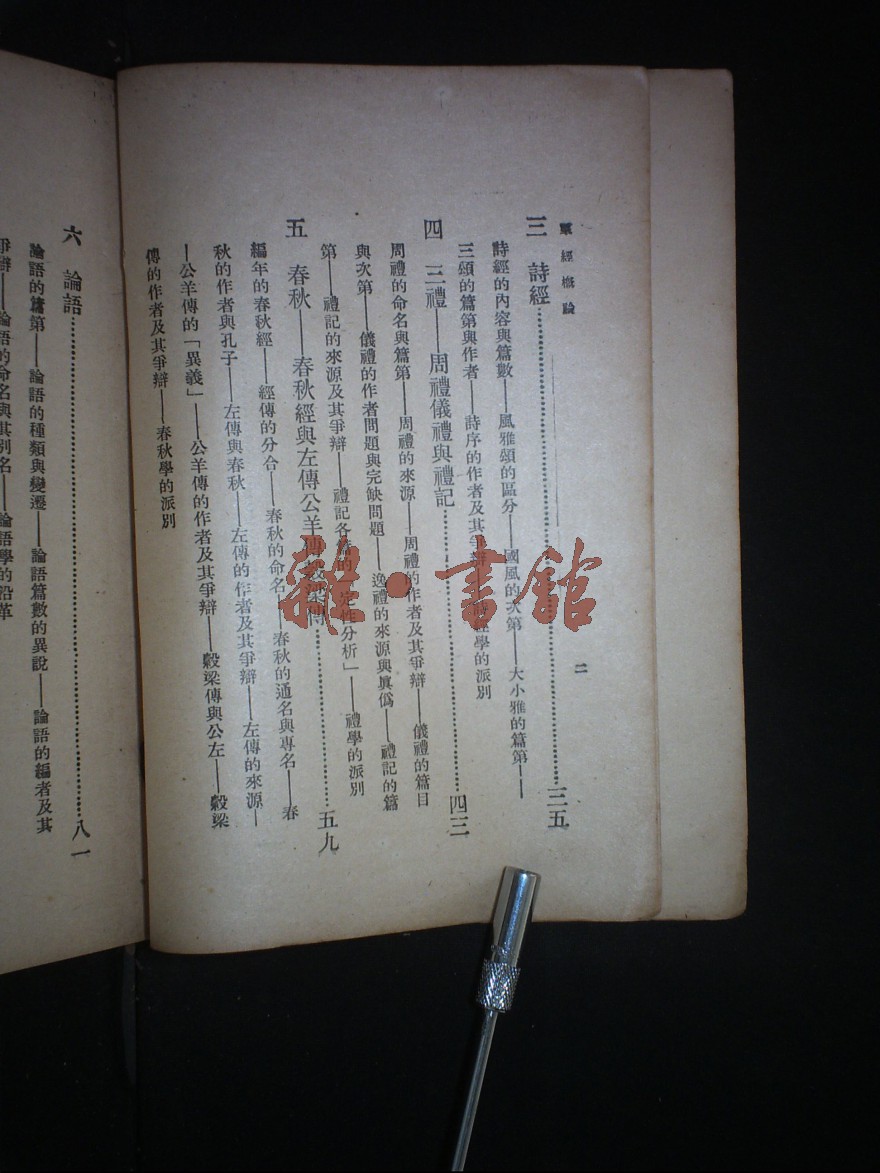 羣經概論
二
三 詩經…………三五
詩經的內容與篇數——風雅頌的區分——國風的次第——大小雅的篇第——
三頌的篇第與作者——詩序的作者及其爭辯——詩經學的派別
四 三禮——周禮儀禮與禮記…………四三
周禮的命名與篇第——周禮的來源——周禮的作者及其爭辯——儀禮的篇目
與次第——儀禮的作者問題與完缺問題——逸禮的來源與眞僞——禮記的篇
第——禮記的來源及其爭辯——禮記各篇的「定性分析」——禮學的派別
五 春秋——春秋經與左傳公羊傳穀梁傳…………五九
編年的春秋經——經傳的分合——春秋的命名——春秋的通名與專名——春
秋的作者與孔子——左傳與春秋——左傳的作者及其爭辯——左傳的來源—
—公羊傳的「異義」——公羊傳的作者及其爭辯——穀梁傳與公左——穀梁
傳的作者及其爭辯——春秋學的派別
六 論語…………八一
論語的篇第——論語的種類與變遷——論語篇數的異說——論語的編者及其
爭辯——論語的命名與其別名——論語學的沿革
雜·書館